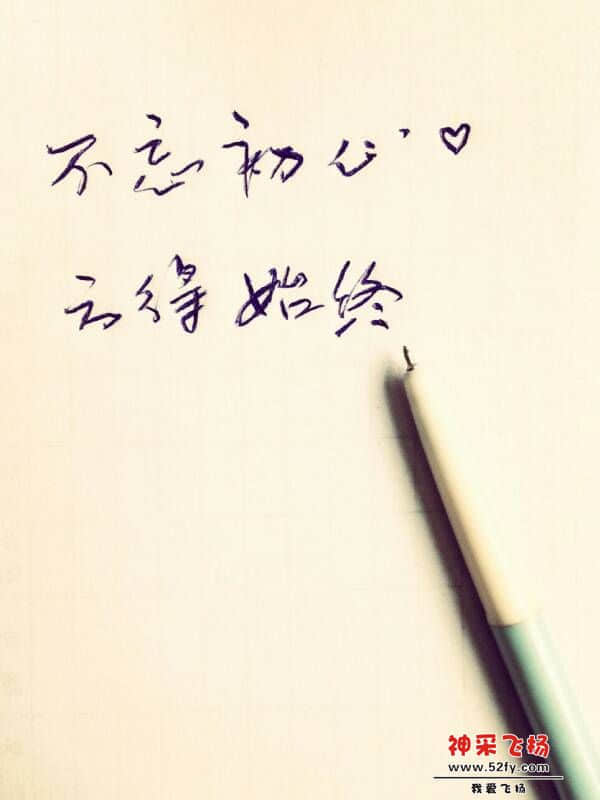 不忘初心 ♡
方得始终
神采飞扬
www.52fy.com
我爱飞扬